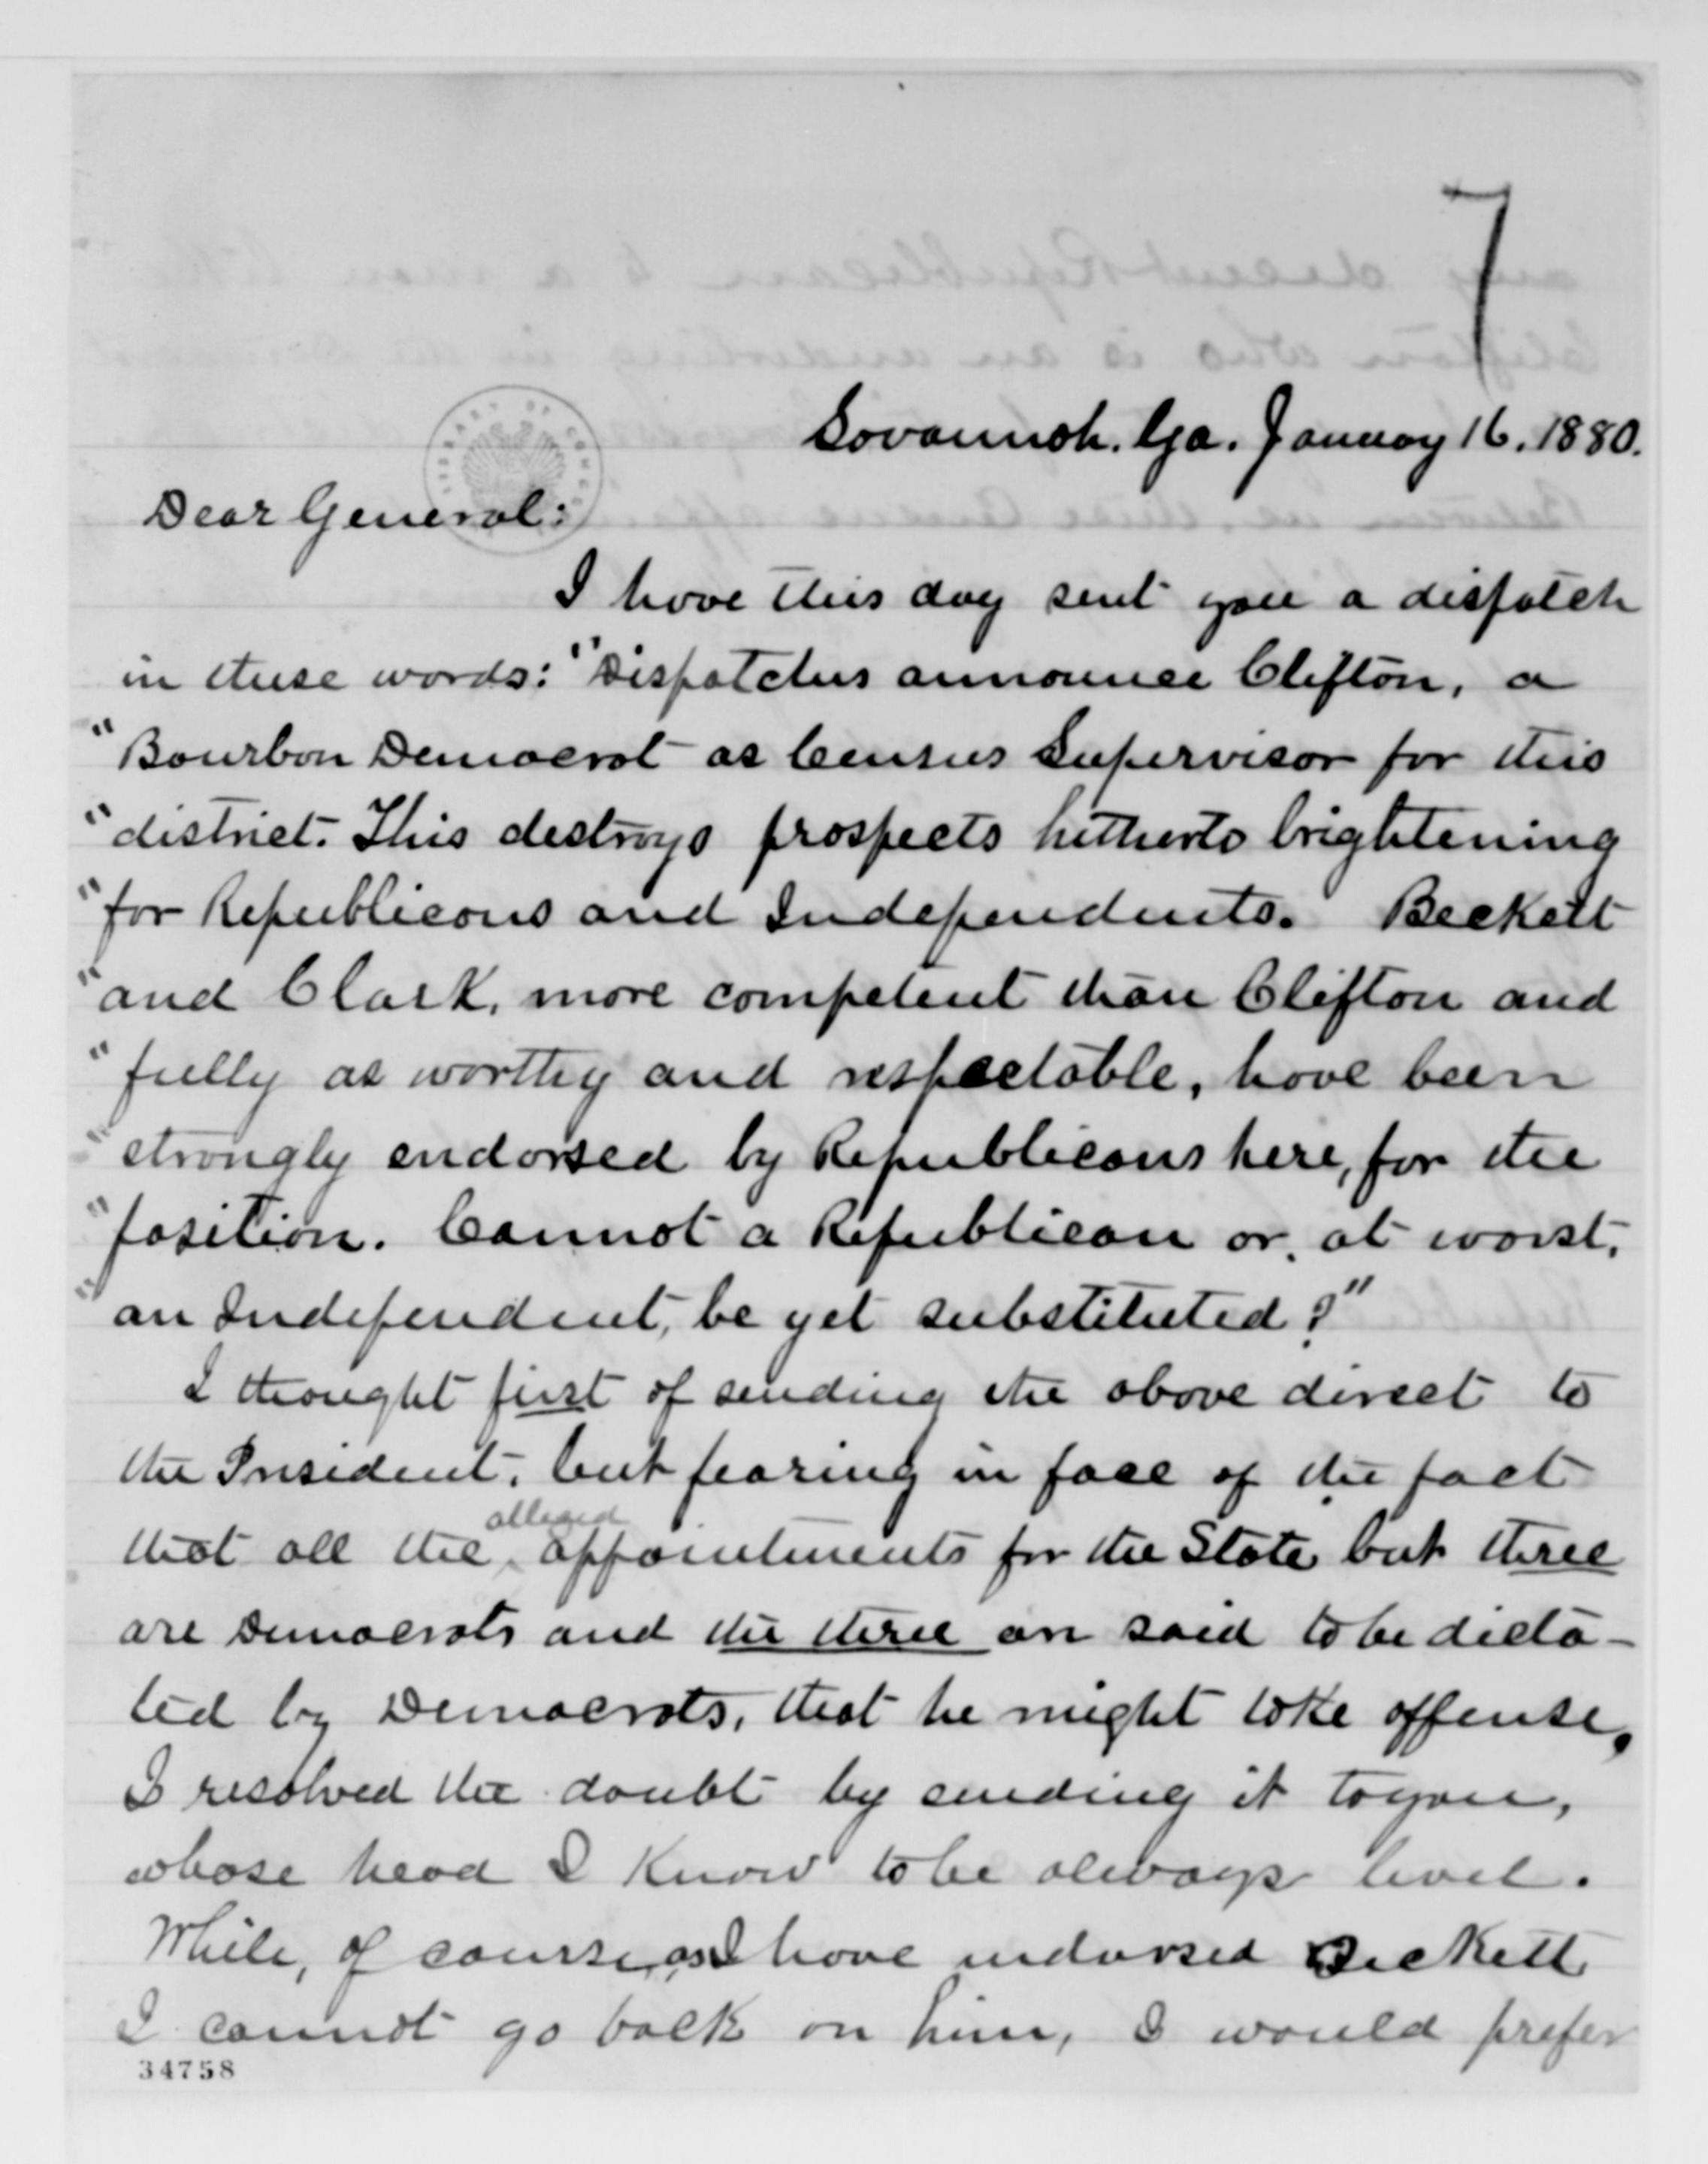 7
Savannah, Ga. January 16, 1880.
Dear General:
I have this day sent you a dispatch
in these words: "Dispatches announce Clifton, a
"Bourbon Democrat as Census Supervisor for this
"district. This destroys prospects hitherto brightening
"for Republicans and Independents. Beckett
"and Clark, more competent than Clifton and
"fully as worthy and respectable, have been
"strongly endorsed by Republicans here, for the
"position. Cannot a Republican or, at worst,
"an Independent, be yet substituted?"
I thought first of sending the above direct to
the President, but fearing in face of the fact
alleged
that all the appointments for the State but three
are Democrats and the three are said to be dicta-
ted by Democrats, that he might take offense,
I resolved the doubt by sending it to you,
whose head I know to be always level.
While, of course, as I have indorsed Beckett
I cannot go back on him, I would prefer
34758